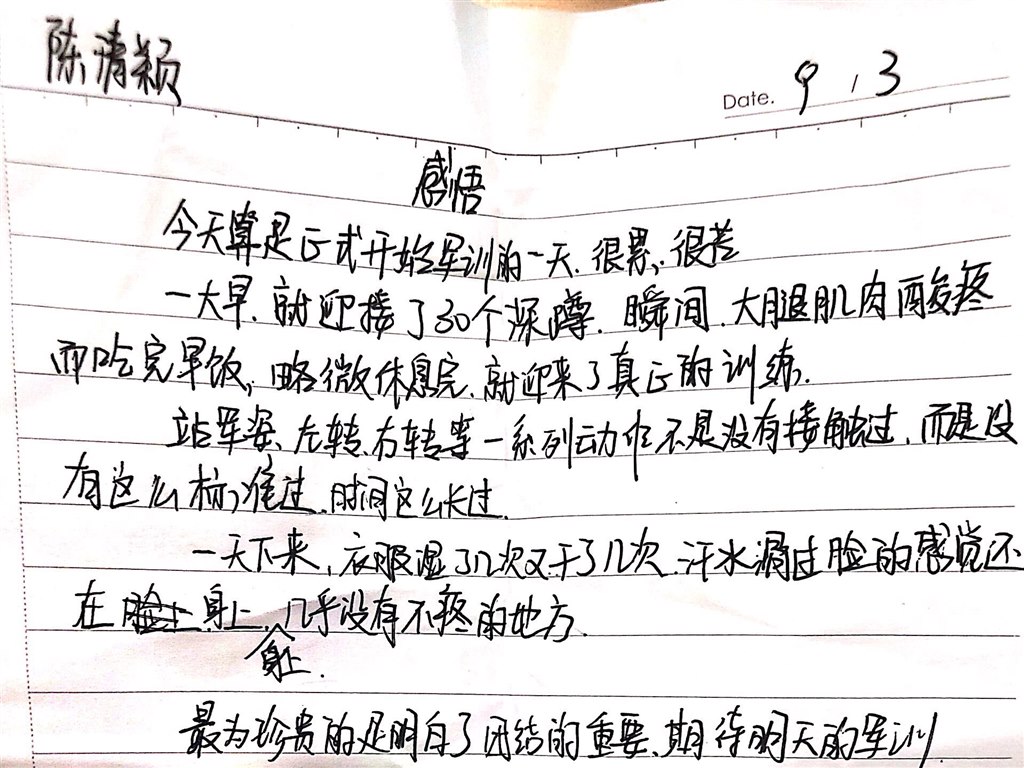 陈清颖
Date. 9.3
感悟
今天算是正式开始军训的一天.很累,很苦
一大早.就迎接了30个深蹲.瞬间.大腿肌肉酸疼
而吃完早饭,略微休息完.就迎来了真正的训练.
站军姿、左转、右转等一系列动作不是没有接触过.而是没
有这么标准过.时间这么长过.
一天下来,衣服湿了几次又干了几次.汗水滴过脸的感觉还
在脸上身上、几乎没有不疼的地方.
身上.
最为珍贵的是明白了团结的重要、期待明天的军训